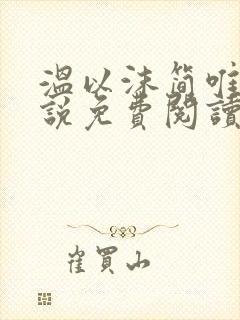 温以沫简唯
說免費閱讀
崔買山